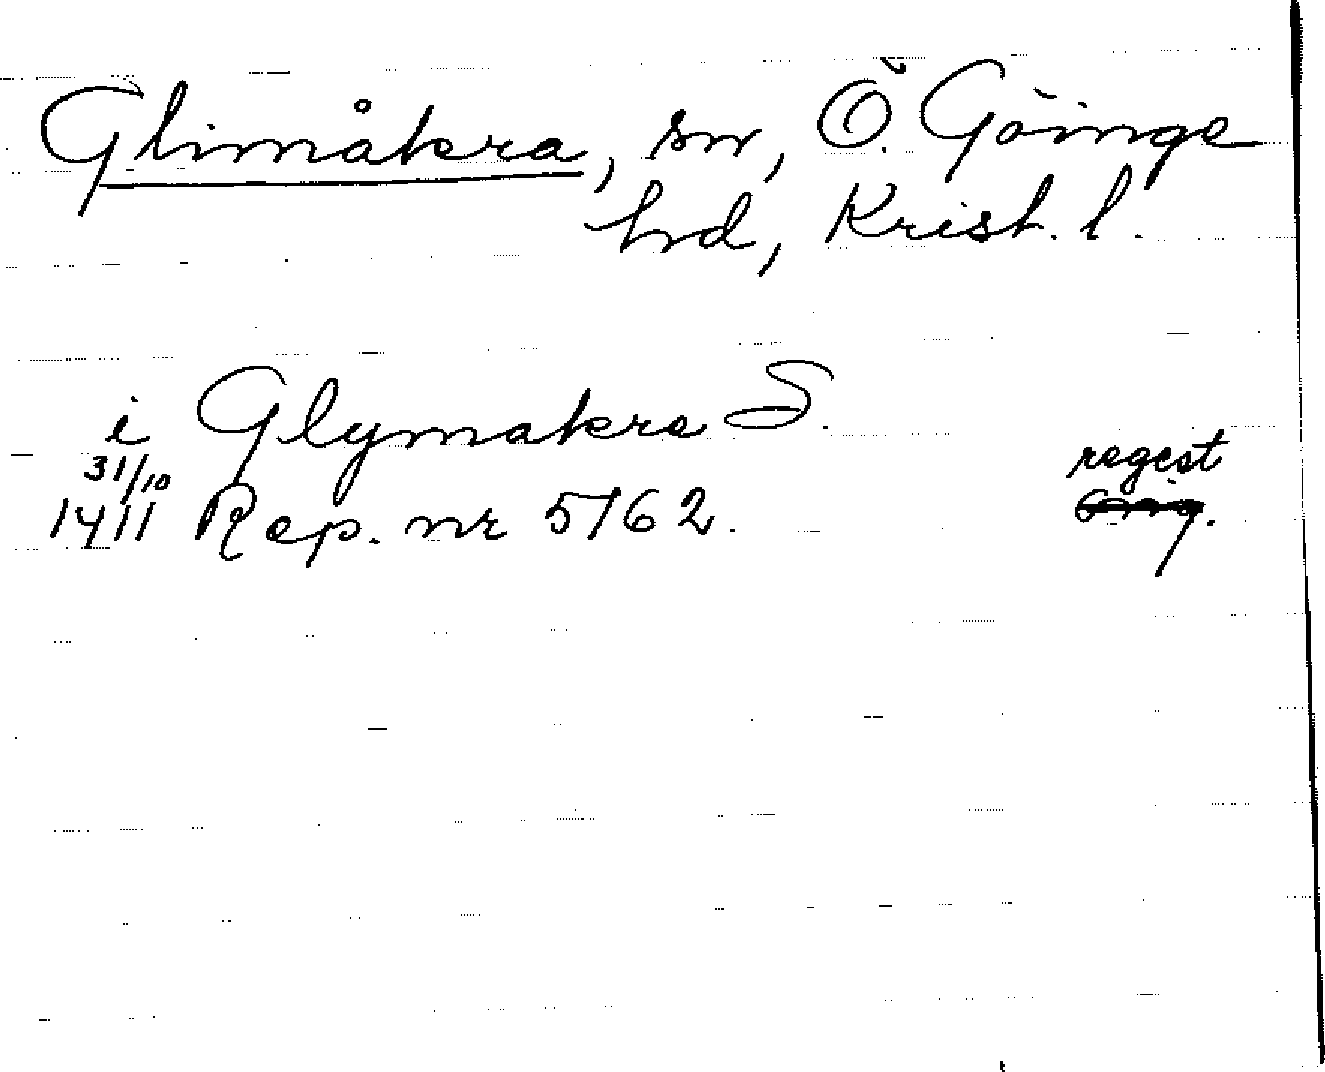 Glimåkra, sn, Ö. Göinge
hd, Krist. l.
i Glymakra S.
31/10 regest
1411 Rep. nr 5162. orig.